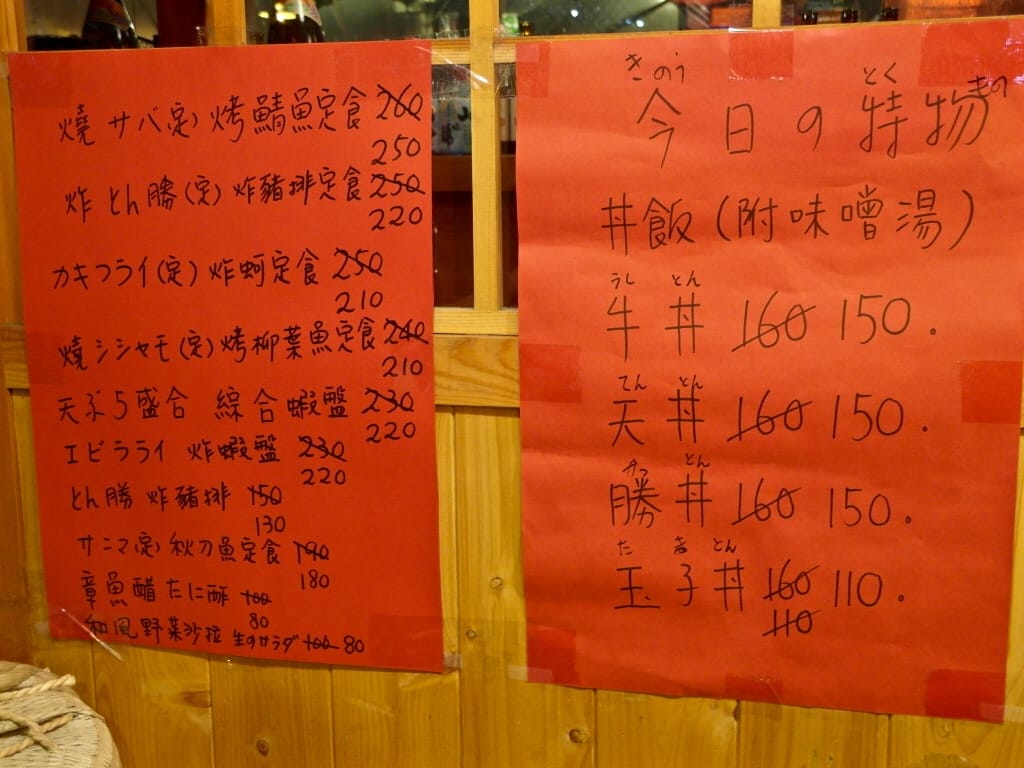 燒サバ(定)烤鯖魚定食 260
250
炸とん勝(定)炸豬排定食 250
220
カキフライ(定)炸蚵定食 250
210
燒シシャモ(定)烤柳葉魚定食 240
210
天ぷら盛合 綜合蝦盤 230
220
エビラライ 炸蝦盤 230
220
とん勝 炸豬排 150
130
サニマ(定)秋刀魚定食 190
180
章魚醋 たに酢 100
80
和風野菜沙拉 生のサラダ 100 80
きのう とく もの
今日の特物
丼飯(附味噌湯)
うし とん
牛丼 160 150.
てん とん
天丼 160 150.
かつ とん
勝丼 160 150.
た ま とん
玉子丼 160 110.
110